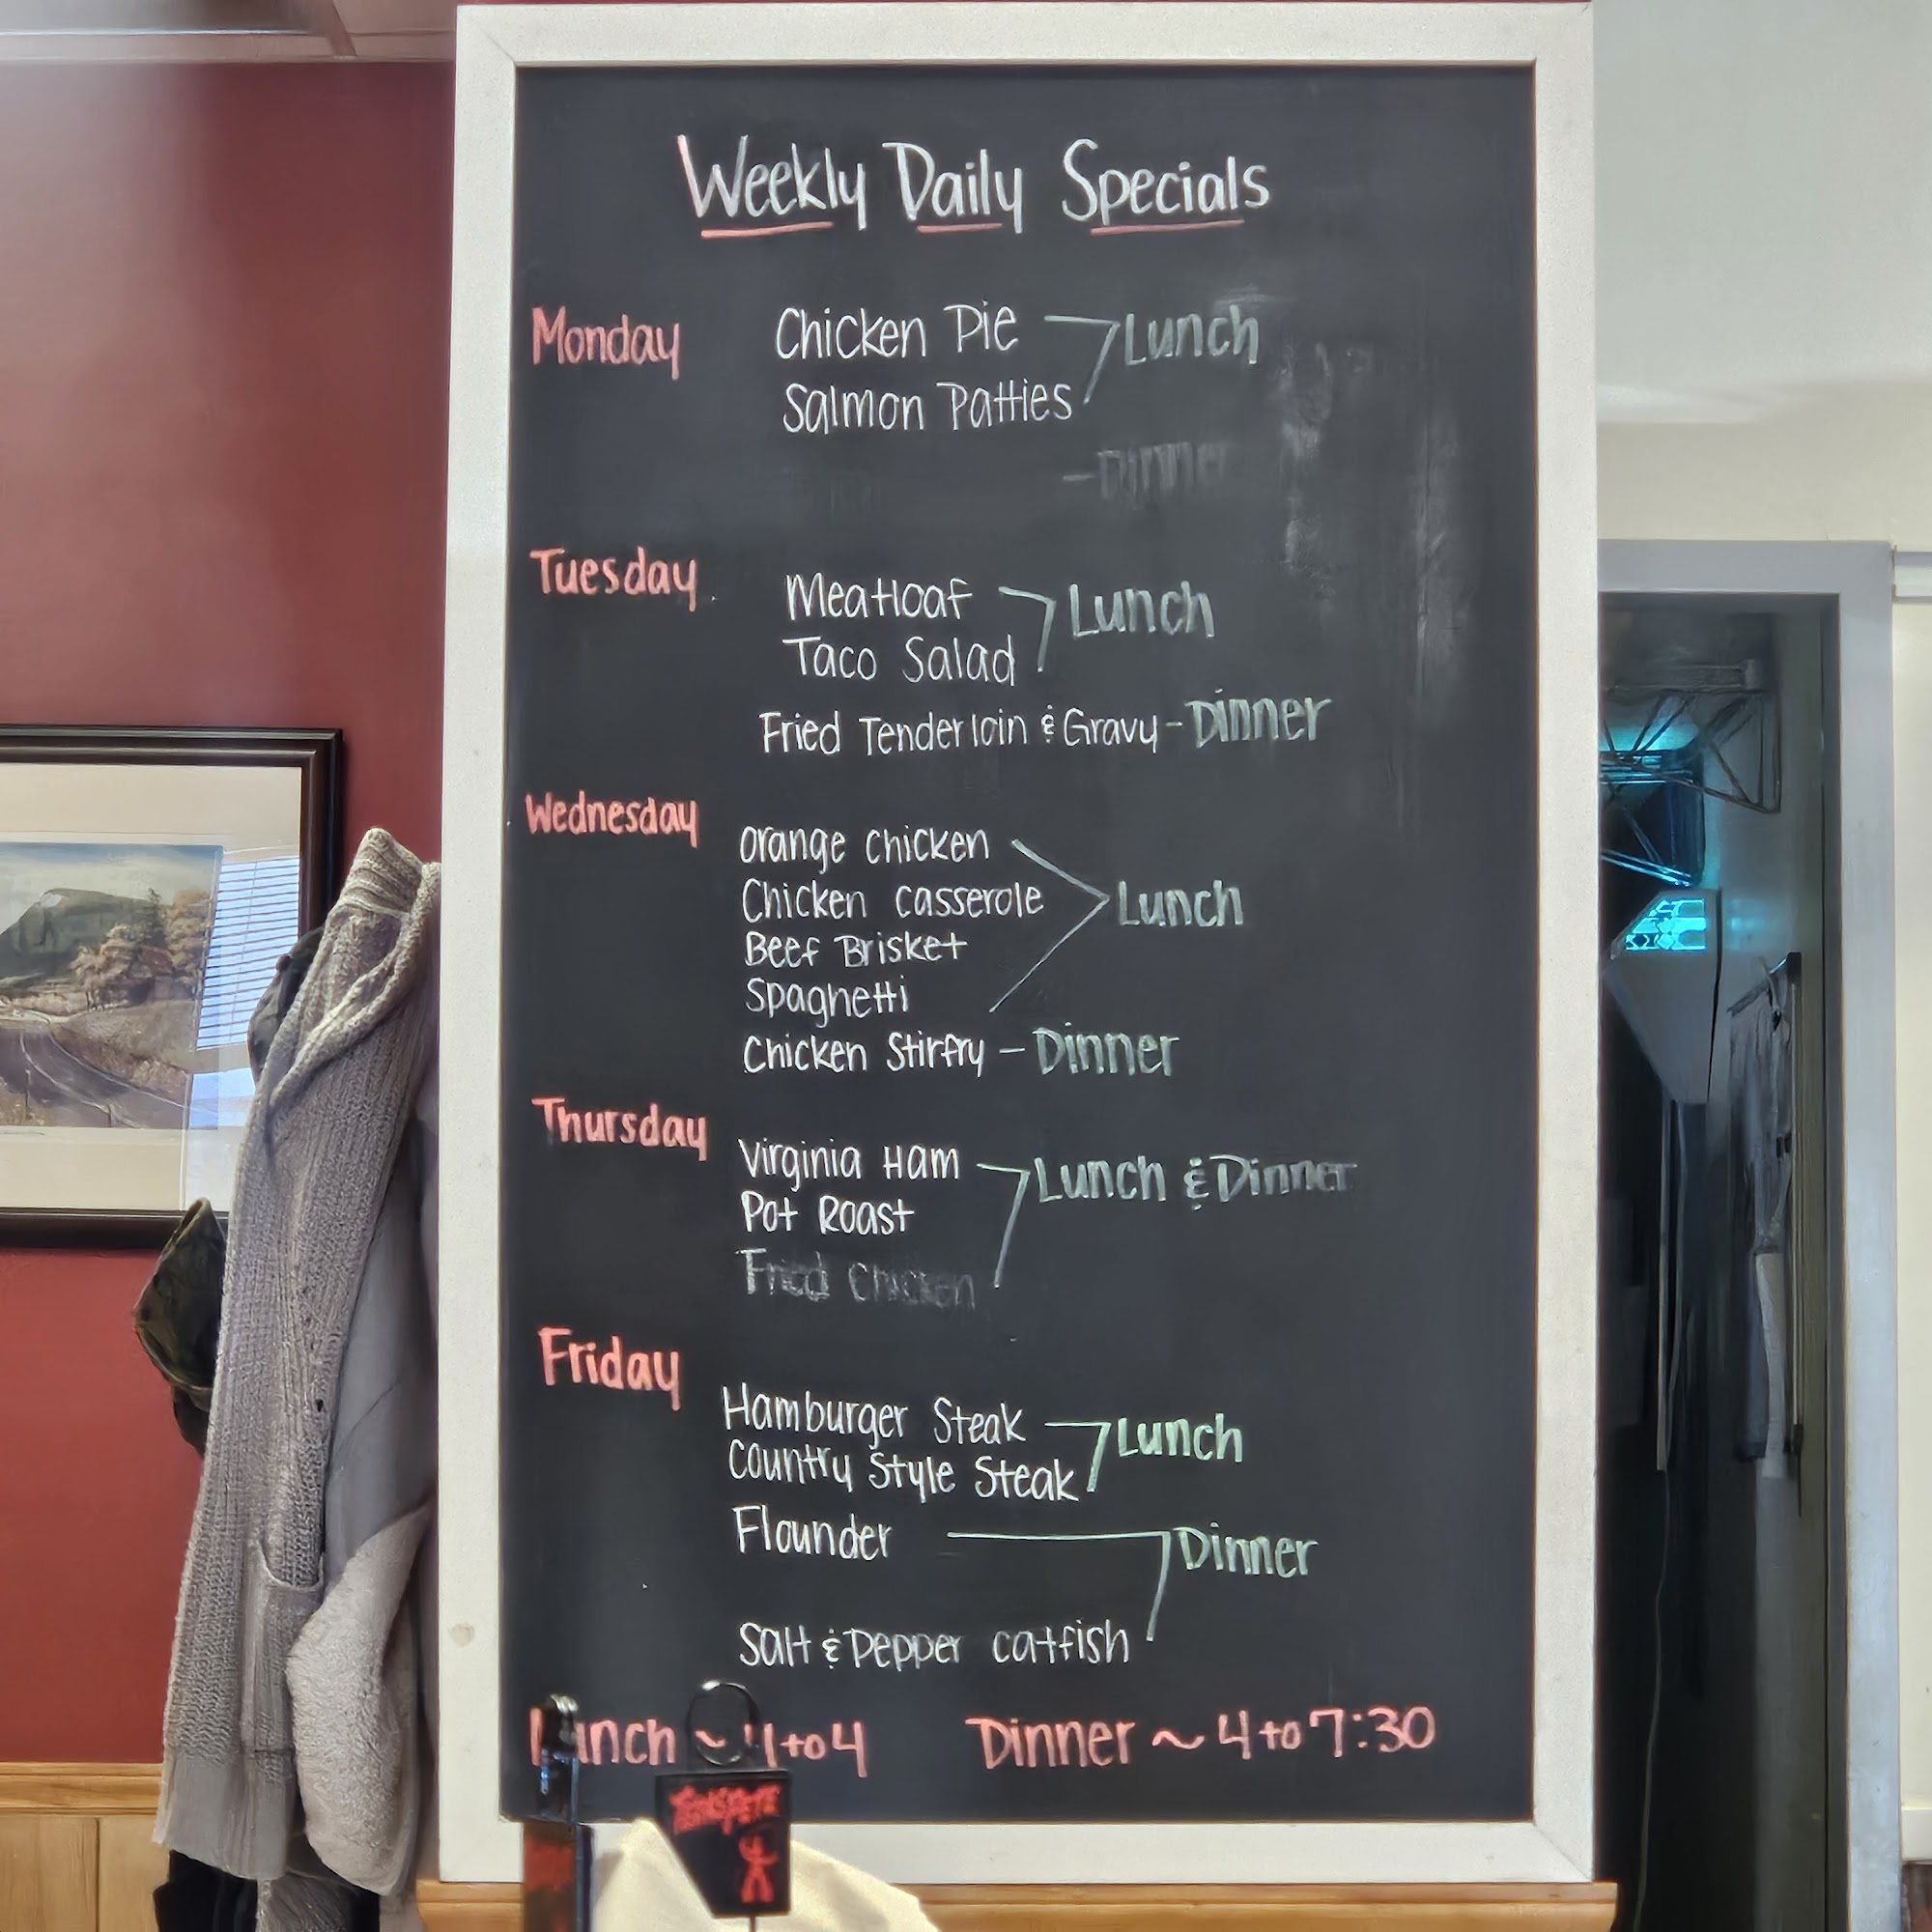 Weekly Daily Specials
Monday
Chicken Pie
Lunch
Salmon Patties
- Dinner
Tuesday
Meatloaf
Lunch
Taco Salad
Fried Tenderloin & Gravy - Dinner
Wednesday
Orange Chicken
Chicken Casserole
Lunch
Beef Brisket
Spaghetti
Chicken Stirfry - Dinner
Thursday
Virginia Ham
Lunch & Dinner
Pot Roast
Fried Chicken
Friday
Hamburger Steak
Lunch
Country Style Steak
Flounder
Dinner
Salt & Pepper Catfish
Lunch ~ 11 to 4 Dinner ~ 4 to 7:30